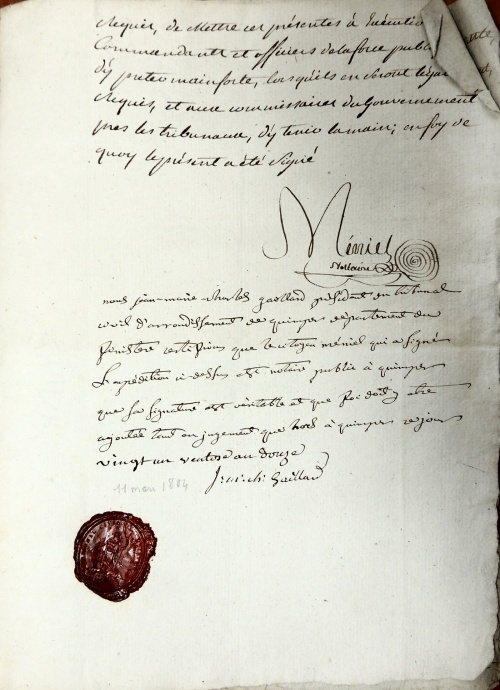 Requis, de Mettre ces présentes à Executio
Commandants et officiers de la force publ
d'y preter main forte, lorsqu'ils en seront légal
Requis, et aux commissaires du Gouvernement
près les tribunaux, d'y tenir la main; en foy de
quoy le présent a été Signé
Méniel
Nottaire
nous jean-marie-charles gaillard président du tribunal
civil d'arrondissement de quimper département du
finistère certifions que le citoyen méniel qui a signé
L'expédition ci-dessus est notaire public à quimper
que sa signature est véritable et que foi doit y etre
ajoutée tant en jugement que hors à quimper ce jour
vingt un ventose an douze
J: m: ch: Gaillard
11 mars 1804